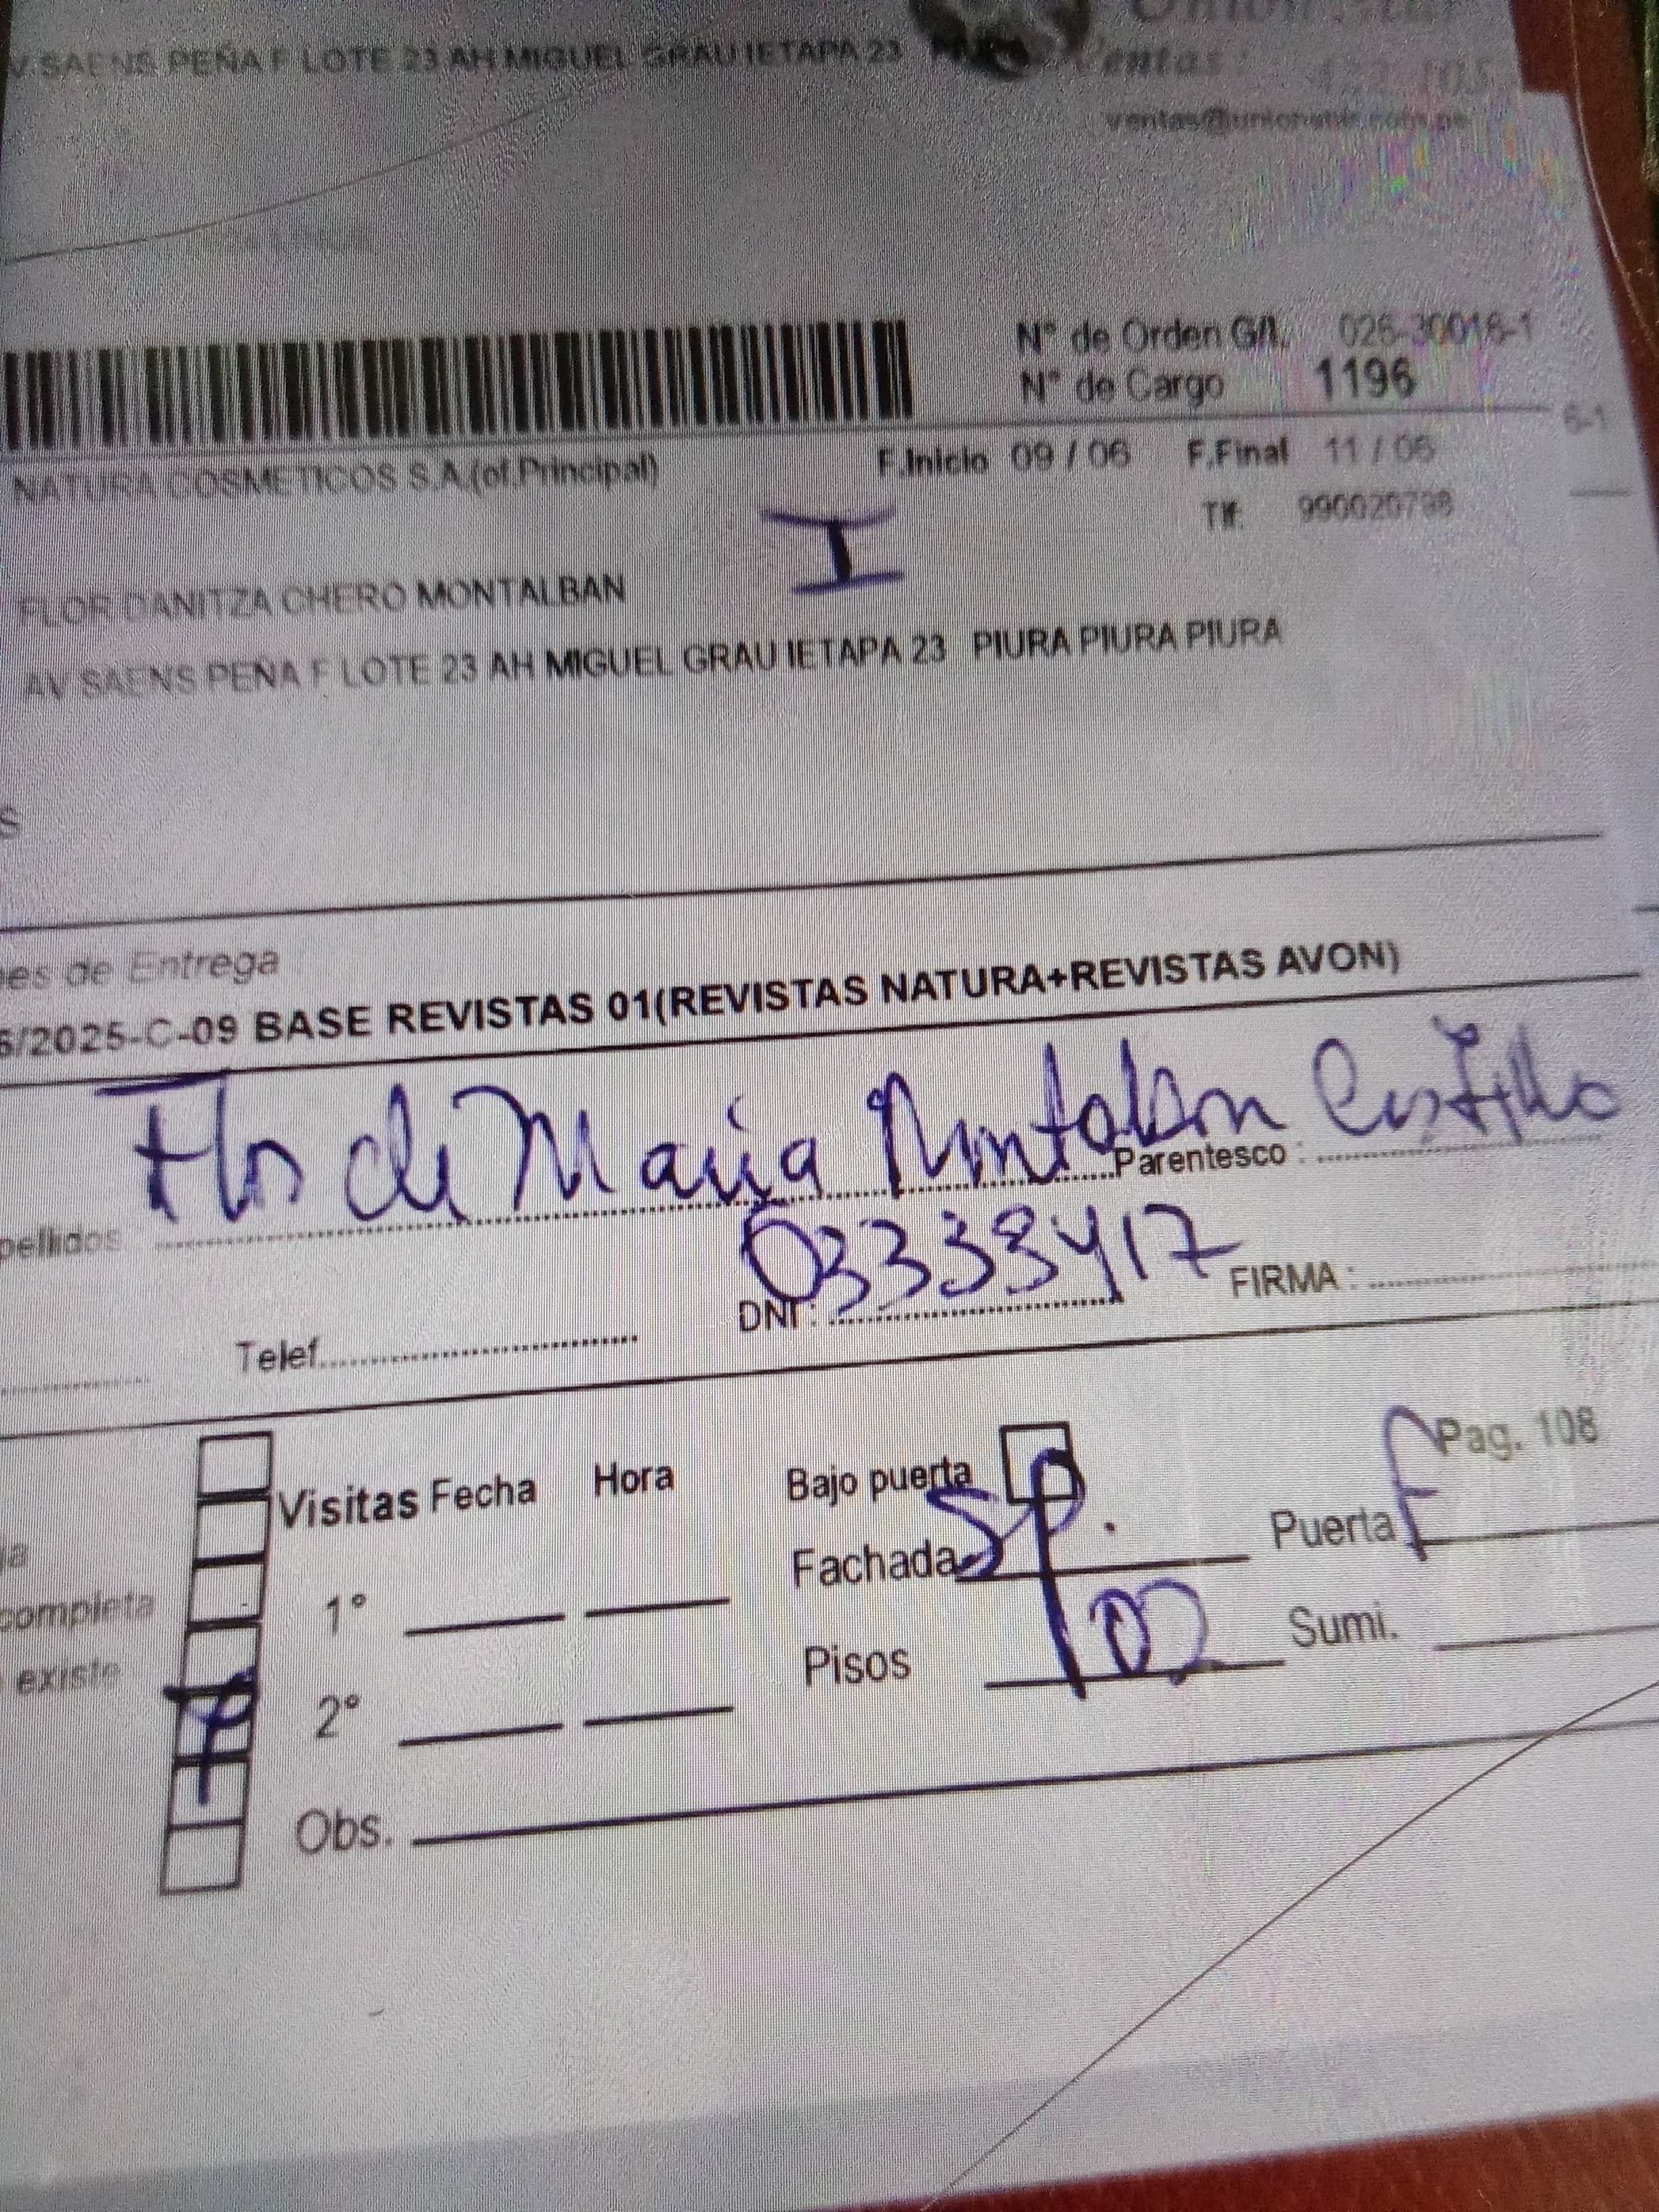 V. SAENS PEÑA F LOTE 23 AH MIGUEL GRAU IETAPA 23
Ventas :
ventas@unionstar.com.pe
N° de Orden G/L. 025-30016-1
N° de Cargo 1196
6-1
NATURA COSMETICOS S.A.(of.Principal) F.Inicio 09 / 06 F.Final 11 / 06
I
Tlf: 990020798
FLOR DANITZA CHERO MONTALBAN
AV SAENS PEÑA F LOTE 23 AH MIGUEL GRAU IETAPA 23 PIURA PIURA PIURA
S
nes de Entrega
6/2025-C-09 BASE REVISTAS 01(REVISTAS NATURA+REVISTAS AVON)
Flor de Maria Montalban Castillo
pellidos Parentesco :
03338417
Telef. DNI : FIRMA :
Pag. 108
Visitas Fecha Hora Bajo puerta
ja Fachada SP. Puerta F
completa 1°
existe Pisos Sumi.
2°
Obs.